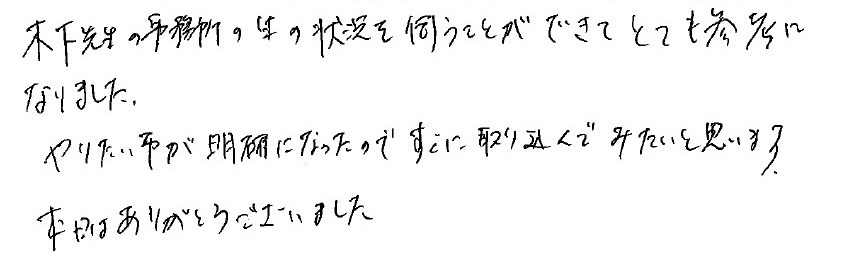 木下先生の事務所の生の状況を伺うことができてとても参考に
なりました。
やりたい事が明確になったのですぐに取り込んでみたいと思います。
本日はありがとうございました